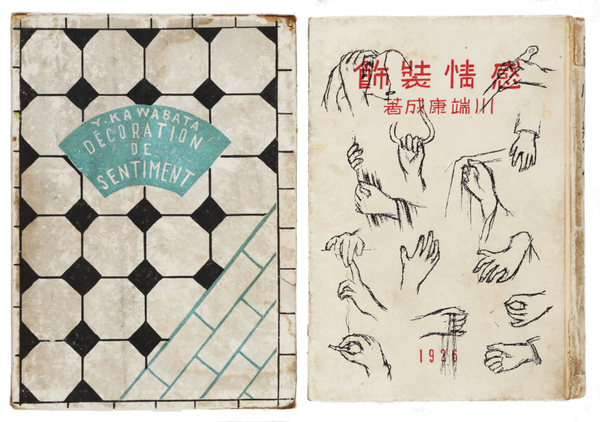 Y. KAWABATA
DÉCORATION
DE
SENTIMENT
飾装情感
著成康端川
1926